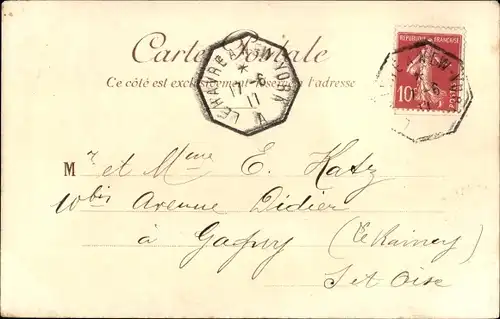 Carte Postale
Ce côté est exclusivement réservé à l'adresse
LE HAVRE A NEW-YORK
* 17 -6 11
REPUBLIQUE FRANÇAISE
10c
Mr et Mme E. Katz
10 bis Avenue Didier
à Gagny (Le Raincy)
S et Oise